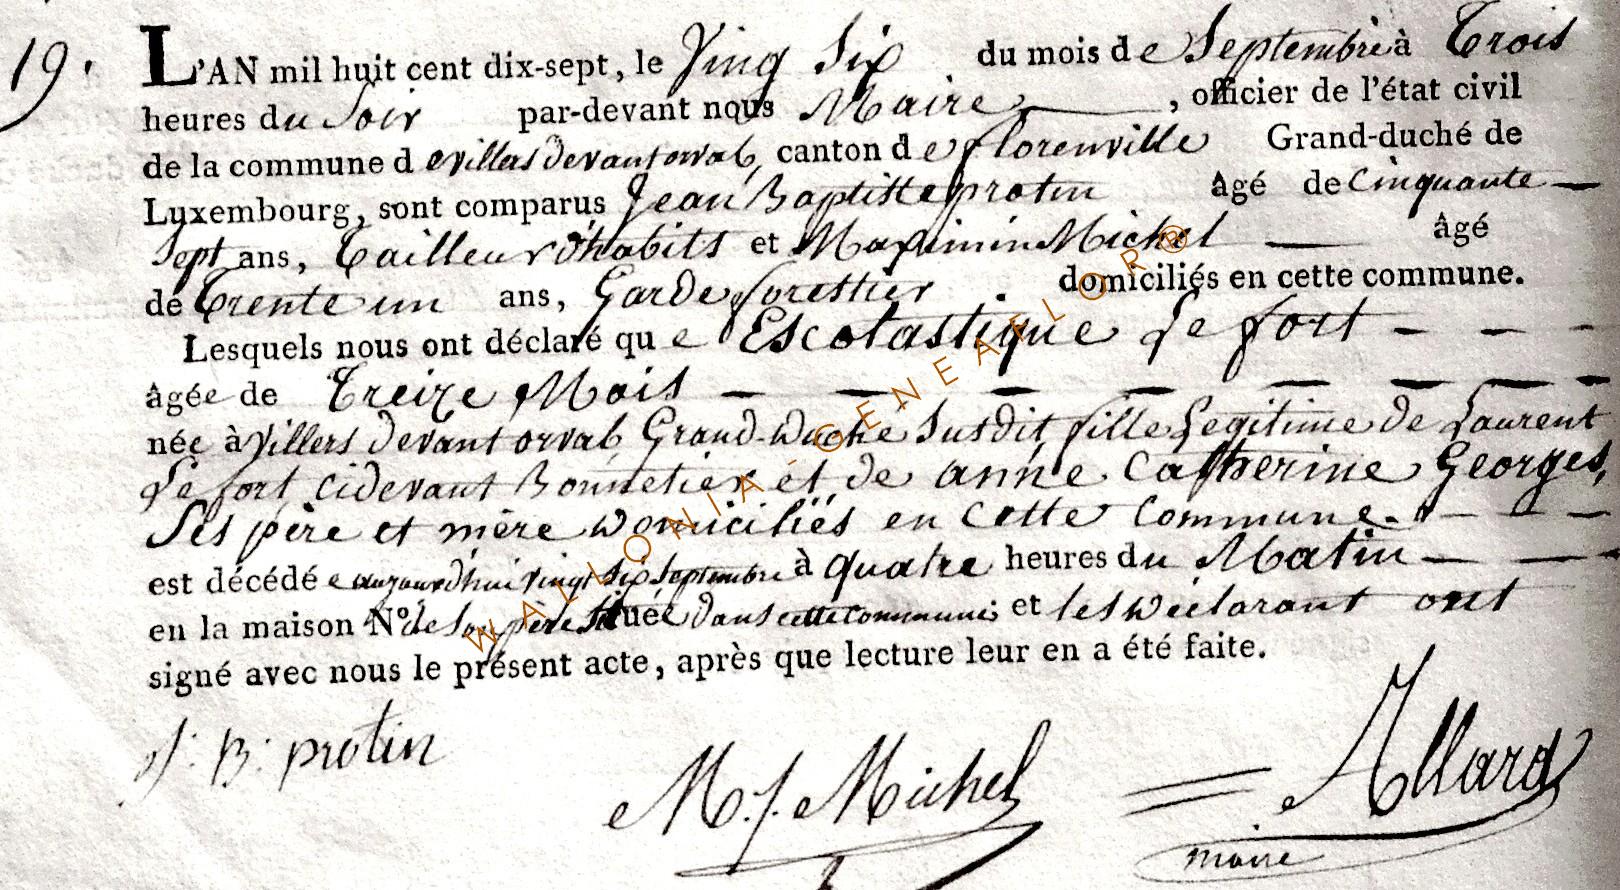 19.
L'AN mil huit cent dix-sept, le Ving Six du mois de Septembre à Trois
heures du Soir par-devant nous Maire, officier de l'état civil
de la commune de villers devant orval, canton de florenville Grand-duché de
Luxembourg, sont comparus Jean Baptiste protin âgé de Cinquante
Sept ans, Tailleur d'habits et Maximin Michel âgé
de Trente un ans, Garde forestier domiciliés en cette commune.
Lesquels nous ont déclaré que Escolastique Le fort - - -
âgée de Treize Mois - - - - - - -
née à villers devant orval, Grand-Duché Susdit, fille Legitime de Laurent
Le fort, cidevant Bonnetier et de anne Catherine Georges,
Ses père et mère Domiciliés en Cette Commune. - - -
est décédée aujourdhui vingt Six Septembre à quatre heures du Matin - - -
en la maison N° de Son père Située dans cette commune; et les Déclarant ont
signé avec nous le présent acte, après que lecture leur en a été faite.
J: B: protin
M. J. Michel
Allard
maire
WALLONIA-GENEAFLOR®